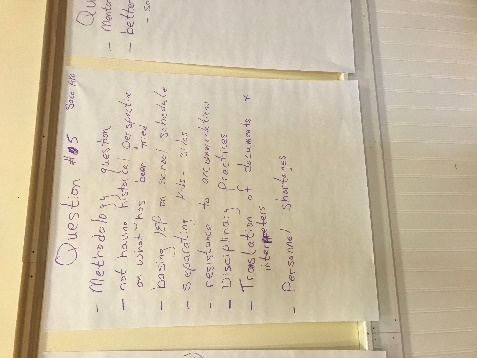 Qu
- Mentor
- better
- so
Question #5
- Methodology question
- not having historical perspective
on what has been tried
- basing IEP on school schedule
- separating kids - silos
- resistance to accommodations
- Disciplinary Practices
- Translation of documents +
interpreters
- Personnel shortages